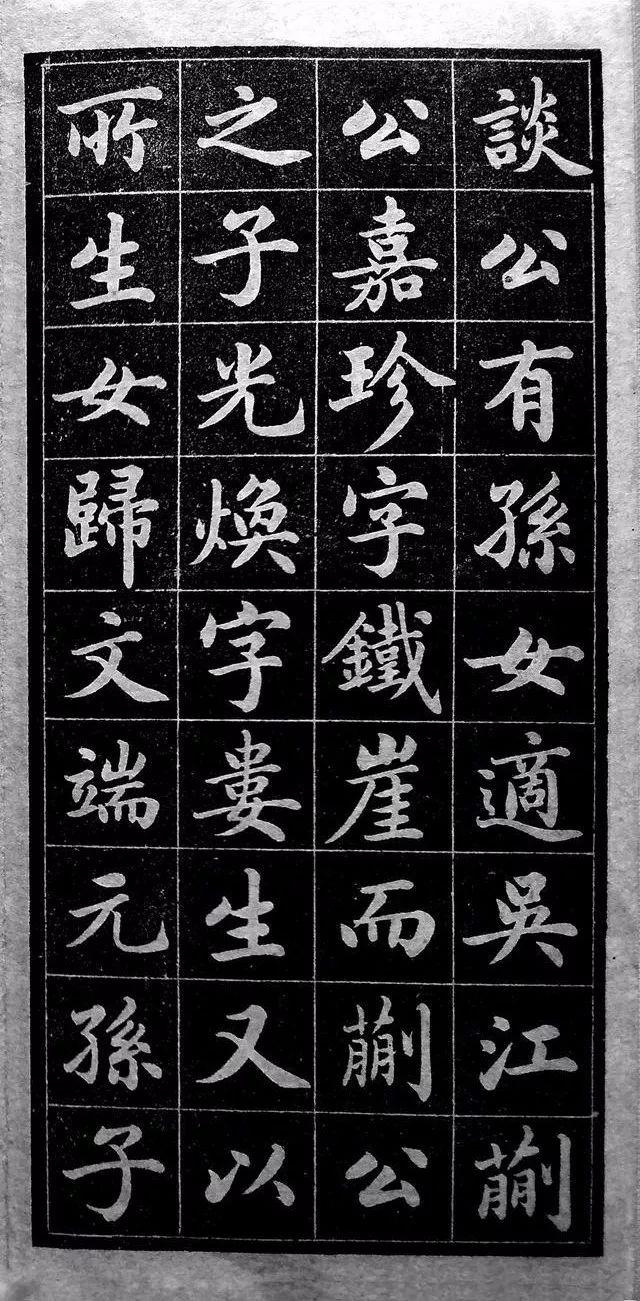 談公有孫女適吳江蒯
公嘉珍字鐵崖而蒯公
之子光煥字婁生又以
所生女歸文端元孫子